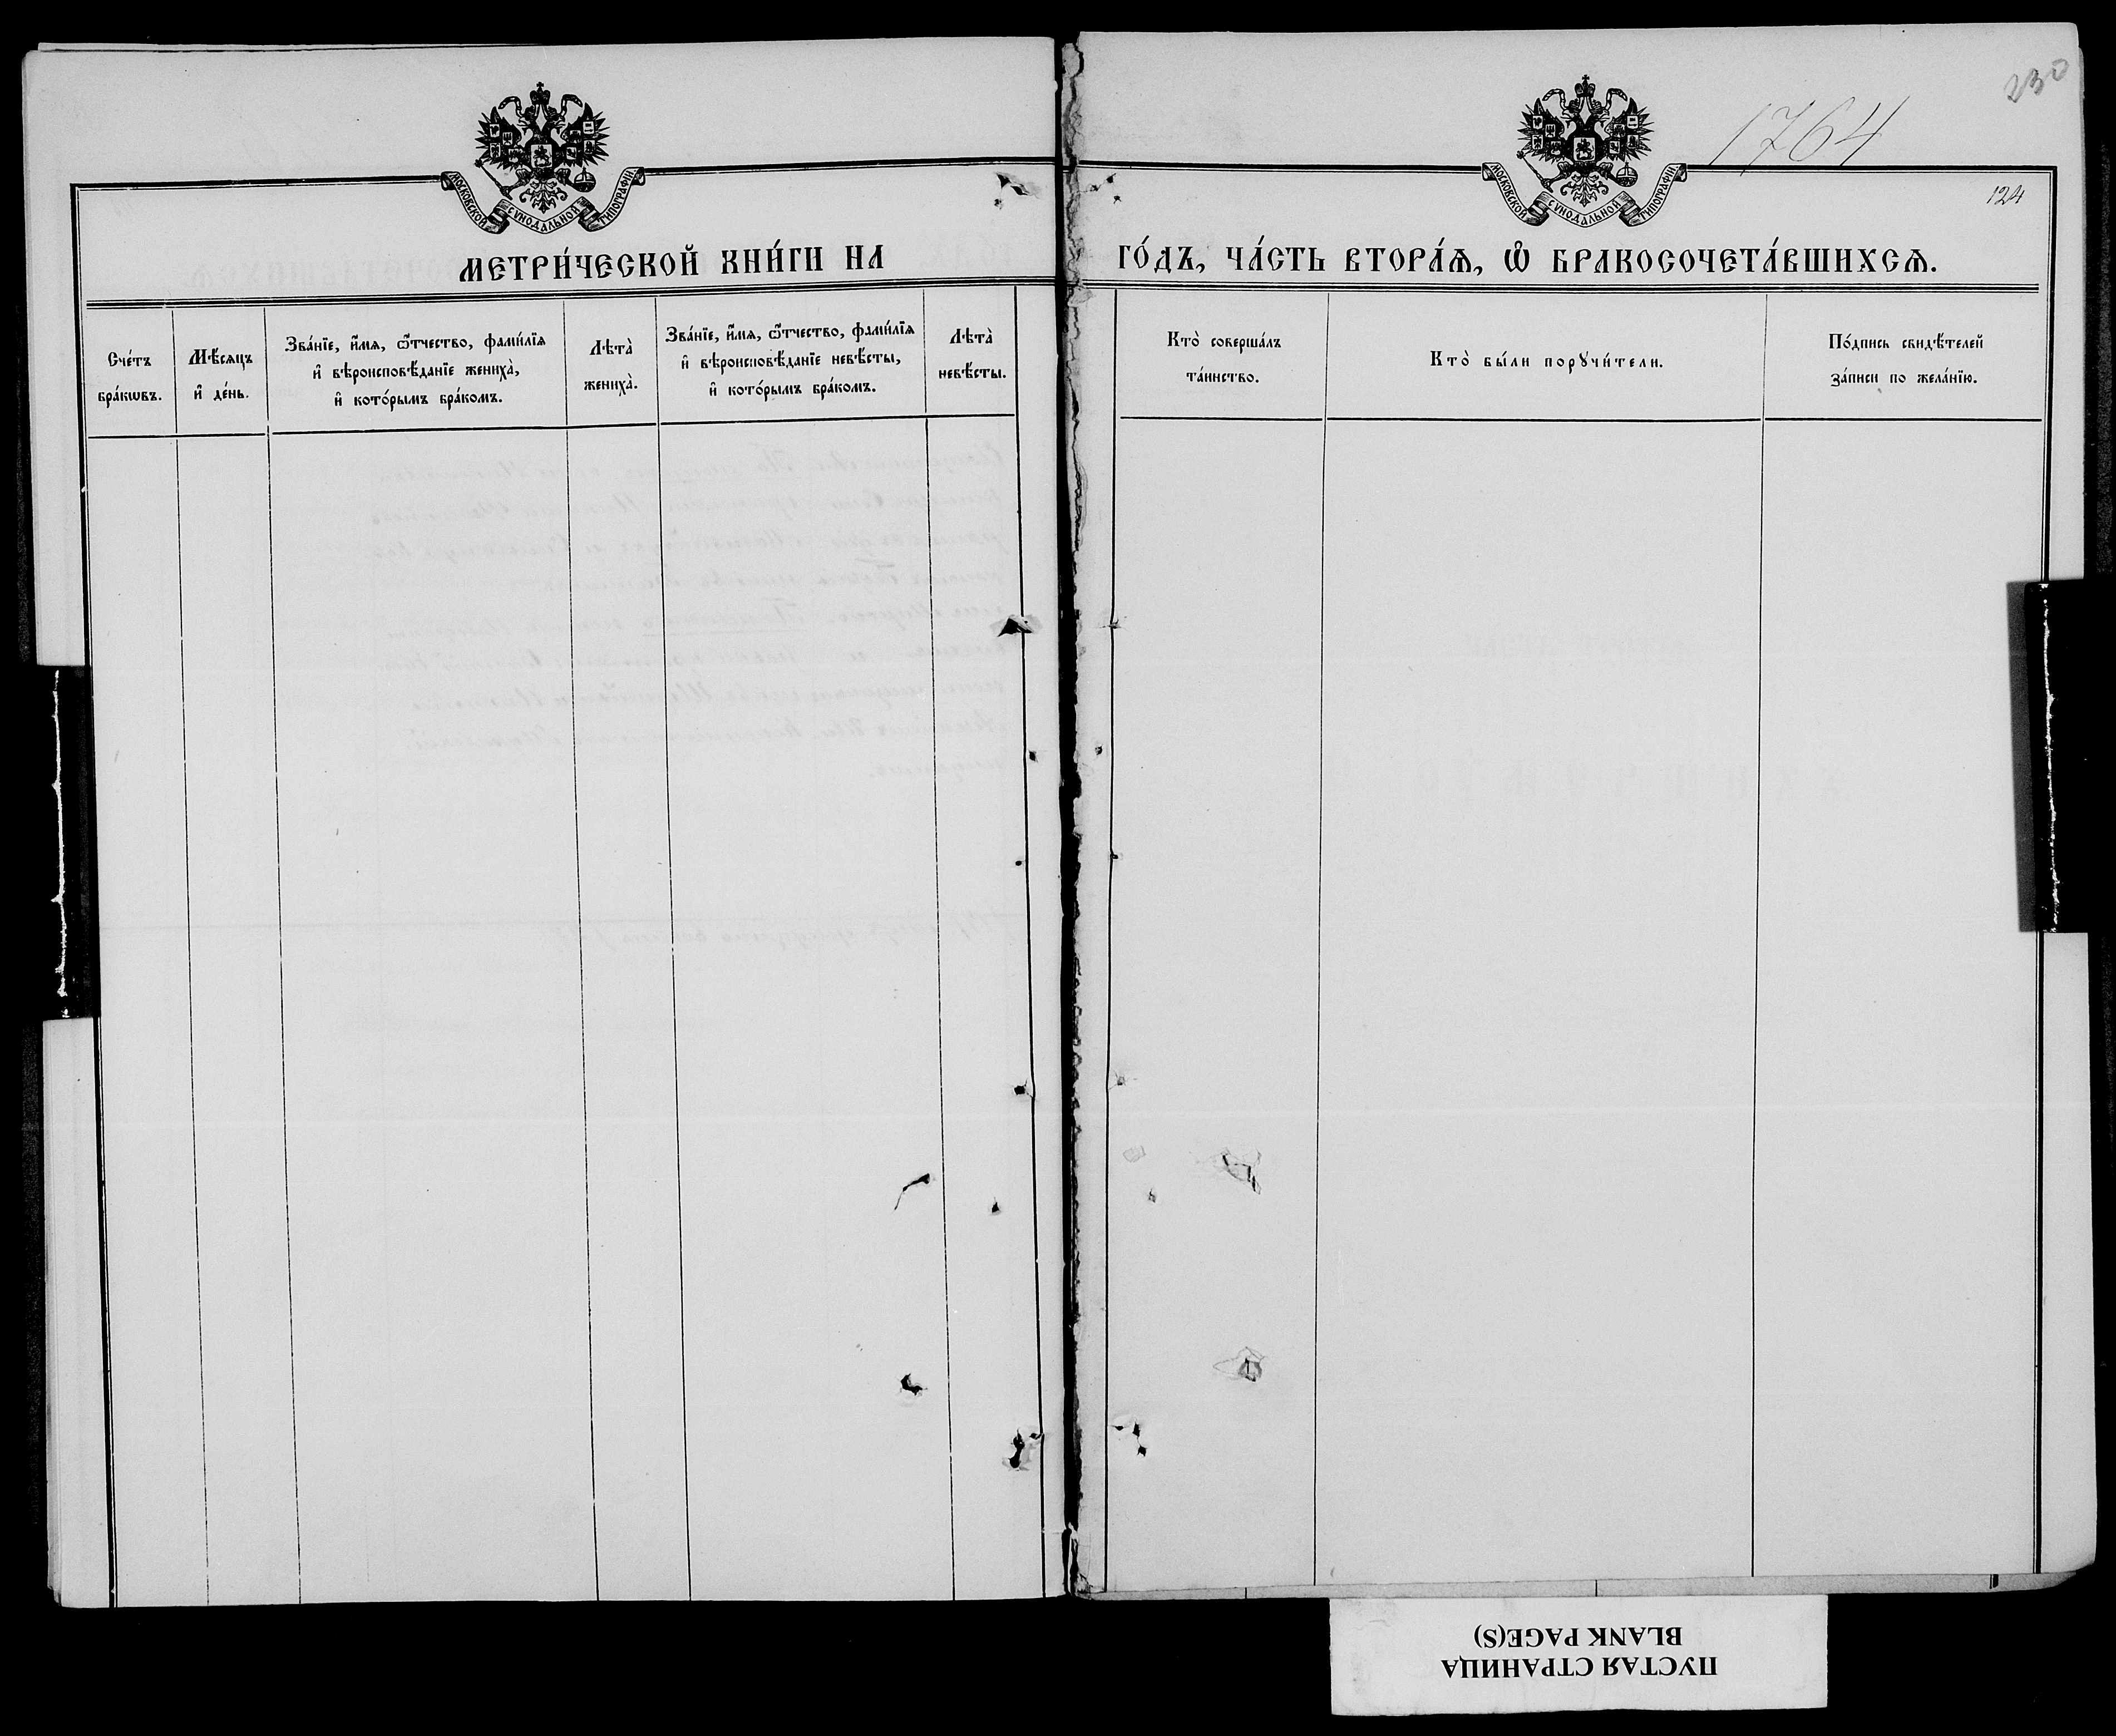 230
1764
124
МОСКОВСКОЙ СѴНОДАЛЬНОЙ ТИПОГРАФІИ
МОСКОВСКОЙ СѴНОДАЛЬНОЙ ТИПОГРАФІИ
МЕТРИ́ЧЕСКОЙ КНИ́ГИ НА
ГО́ДЪ, ЧА́СТЬ ВТОРА́Ѧ, Ѽ БРАКОСОЧЕТА́ВШИХСѦ.
Сче́тъ
бра́кѡвъ.
Мѣ́сяцъ
и҆ де́нь.
Зва́нїе, и҆́мя, ѻ҆́тчество, фами́лїя
и҆ вѣроисповѣ́данїе жениха̀,
и҆ кото́рымъ бра́комъ.
Лѣта̀
жениха̀.
Зва́нїе, и҆́мя, ѻ҆́тчество, фами́лїя
и҆ вѣроисповѣ́данїе невѣ́сты,
и҆ кото́рымъ бра́комъ.
Лѣта̀
невѣ́сты.
Кто̀ соверша́лъ
та́инство.
Кто̀ бы́ли порꙋчи́тели.
По́дпись свидѣ́телей
за́писи по жела́нїю.
ПУСТАЯ СТРАНИЦА
BLANK PAGE(S)